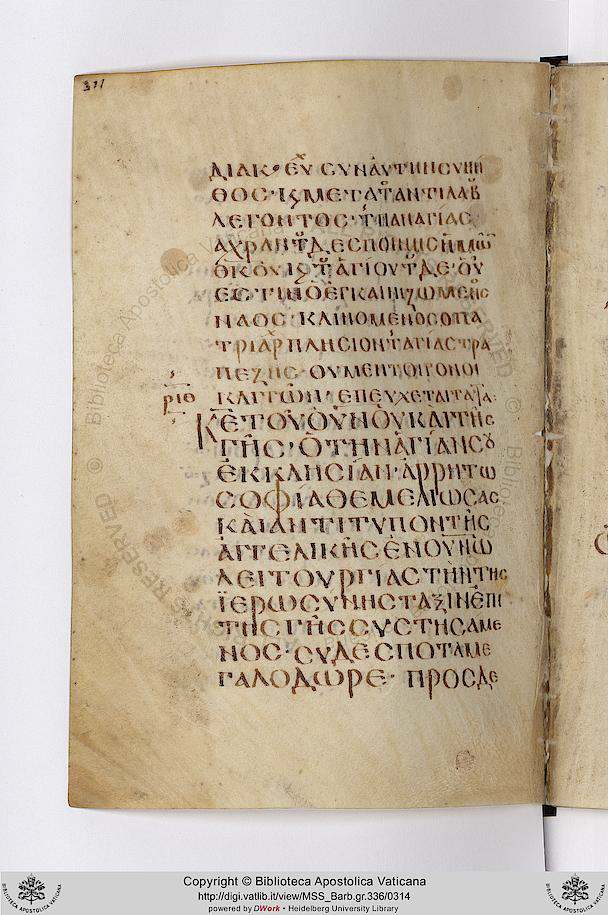 311
ΔΙΑΚ· ΕΥ ΣΥΝΑΥΤΗΝ ΣΥΝΗ
ΘΟΣ· ΚΣ ΜΕΤΑ Τ ΑΝΤΙΛΑΒ
ΛΕΓΟΝΤΟΣ· Τ ΠΑΝΑΓΙΑΣ
ΑΧΡΑΝΤ ΔΕΣΠΟΙΝΗΣ ΗΜΩ
ΘΚΟΥ Κς Τ ΑΓΙΟΥ Τ ΔΕ· ΟΥ
ΕΣΤΙΝ Ο ΕΓΚΑΙΝΙΖΩΜΕΝΟΣ
ΝΑΟΣ· ΚΛΙΝΟΜΕΝΟΣ Ο ΠΑ
ΤΡΙΑΡ ΠΛΗΣΙΟΝ Τ ΑΓΙΑΣ ΤΡΑ
ΠΕΖΗΣ· ΟΥ ΜΕΝΤΟΙ ΓΟΝΟΙ
ΚΛΙΤΩΝ· ΕΠΕΥΧΕΤΑΙ ΤΑΥΤΑ:
ΡΙΘ
ΚΕ ΤΟΥ ΟΥΝΟΥ ΚΑΙ ΤΗς
ΓΗΣ· Ο ΤΗΝ ΑΓΙΑΝ ΣΟΥ
ΕΚΚΛΗΣΙΑΝ· ΑΡΡΗΤΩ
ΣΟΦΙΑ ΘΕΜΕΛΙΩΣΑΣ
ΚΑΙ ΑΝΤΙΤΥΠΟΝ ΤΗΣ
ΑΓΓΕΛΙΚΗΣ ΕΝ ΟΥΝΩ
ΛΕΙΤΟΥΡΓΙΑΣ ΤΗΝ ΤΗς
ΪΕΡΩΣΥΝΗΣ ΤΑΞΙΝ ΕΠΙ
ΤΗΣ ΓΗΣ ΣΥΣΤΗΣΑΜΕ
ΝΟΣ· ΣΥ ΔΕΣΠΟΤΑ ΜΕ
ΓΑΛΟΔΩΡΕ· ΠΡΟΣΔΕ
Copyright © Biblioteca Apostolica Vaticana
http://digi.vatlib.it/view/MSS_Barb.gr.336/0314
powered by DWork • Heidelberg University Library